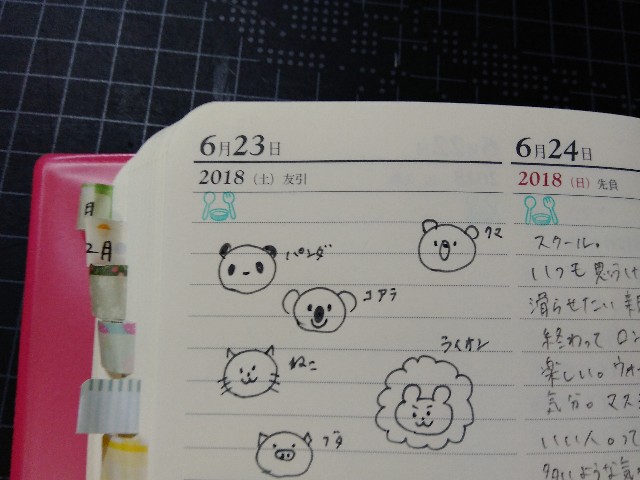 6月23日
2018（土）友引
クマ
パンダ
コアラ
ねこ
ライオン
ブタ
6月24日
2018（日）先負
スクール。
いつも思うけ
滑らせたい
終わって ロン
楽しい。ウォー
気分。マス
いい人。って
ような気
月
2月